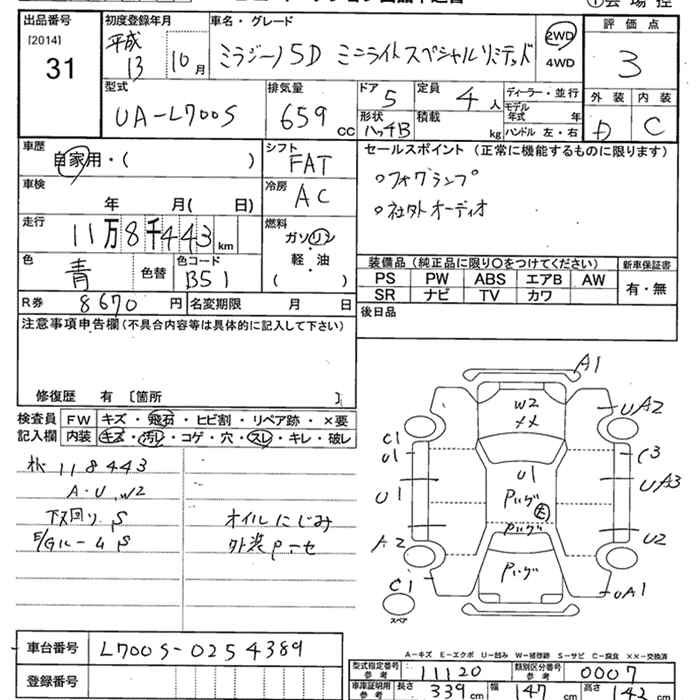 出品番号 初度登録年月 車名・グレード 評価点
[2014] 31 平成13 10月 ミラジーノ5D ミニライトスペシャルリミテッド 2WD 4WD 3
型式 排気量 ドア 定員 ディーラー・並行 外装 内装
UA-L700S 659cc 5 4人 モデル年式 年 D C
形状 ハッチB 積載 kg ハンドル 左・右
車歴 シフト セールスポイント (正常に機能するものに限ります)
自家用・( ) FAT ○フォグランプ
車検 年 月( 日) 冷房 AC ○社外オーディオ
走行 11万8千443km 燃料 ガソリン・軽油・( )
色 青 色替 色コード B51
装備品 (純正品に限り○をつけてください) 新車保証書
PS PW ABS エアB AW 有・無
SR ナビ TV カワ
R券 8670円 名変期限 月 日
後日品
注意事項申告欄 (不具合内容等は具体的に記入して下さい)
修復歴 有 [箇所 ]
検査員記入欄 FW キズ・飛石・ヒビ割・リペア跡・×要
内装 キズ・汚レ・コゲ・穴・スレ・キレ・破レ
118443
A・U.W2
下回り S オイルにじみ
E/Gルーム S
A1
W2
UA2
C1
U1
C3
U1
U1
UA3
A2
U2
C1
UA1
スペア
A-キズ E-エクボ U-凹み W-補修跡 S-サビ C-腐食 ××-交換済
車台番号 L700S-0254389
登録番号
型式指定番号 参考 11120 類別区分番号 参考 0007
車庫証明用 参考 長さ 339cm 幅 147cm 高さ 142cm